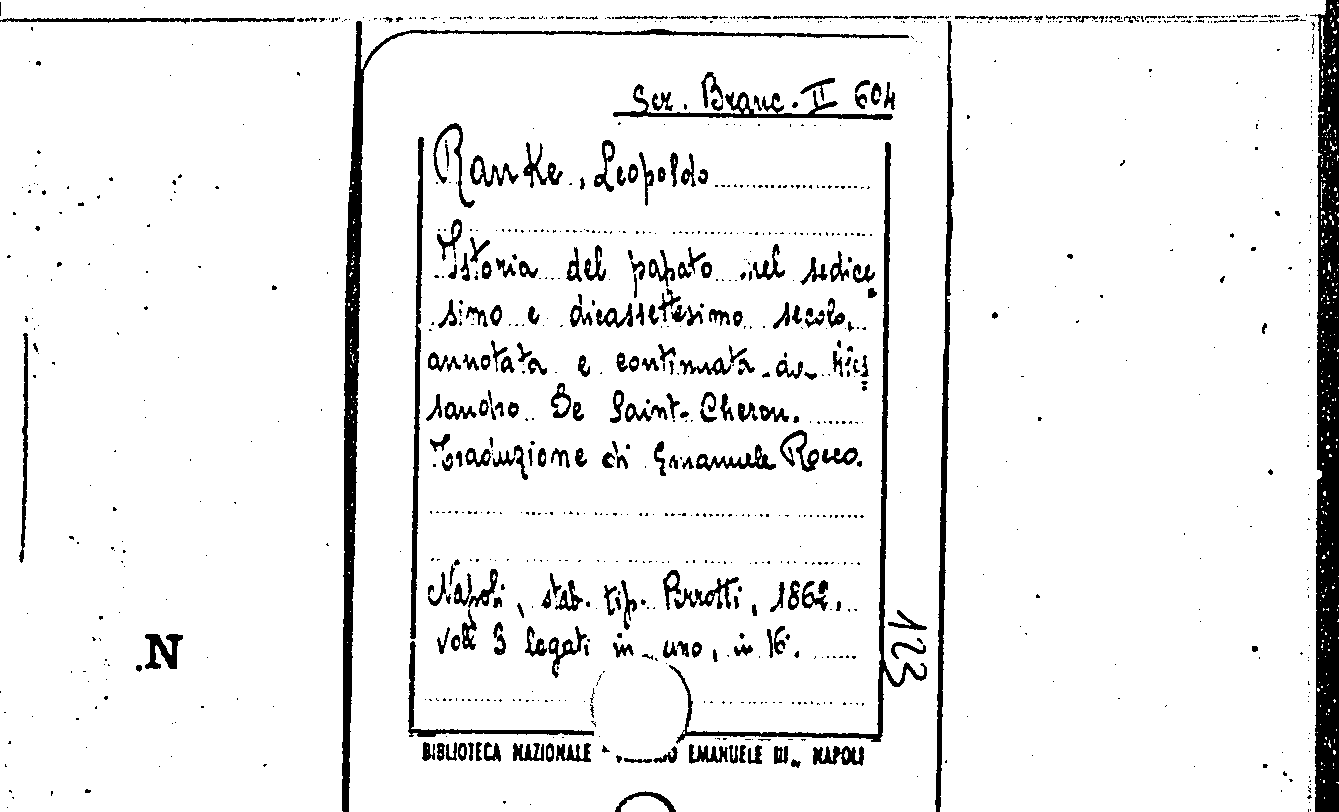 Scr. Branc. II 604
Ranke, Leopoldo
Istoria del papato nel sedice
simo e diciassettesimo secolo,
annotata e continuata da
sandro De Saint-Cheron.
Traduzione di Emanuele Rocco.
Napoli, stab. tip. Perrotti, 1862.
voll 3 legati in uno, in 16°.
123
.N
BIBLIOTECA NAZIONALE EMANUELE III„ NAPOLI